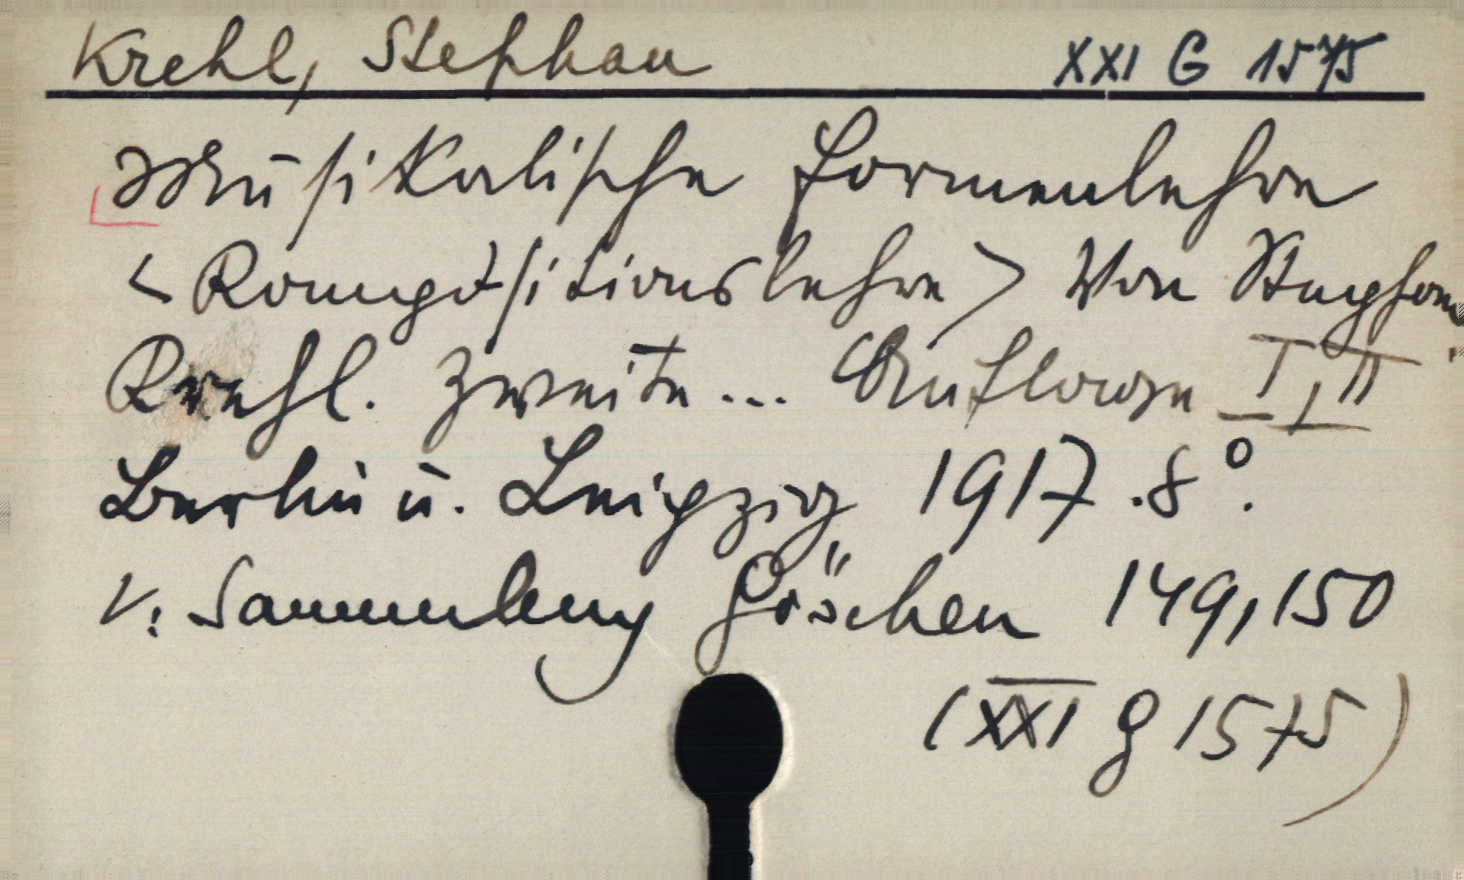 Krehl, Stephan XXI G 1575
Musikalische Formenlehre
<Kompositionslehre> Von Stephan
Krehl. Zweite... Auflage I, II
Berlin u. Leipzig 1917. 8°.
V: Sammlung Göschen 149, 150
(XXI G 1575)